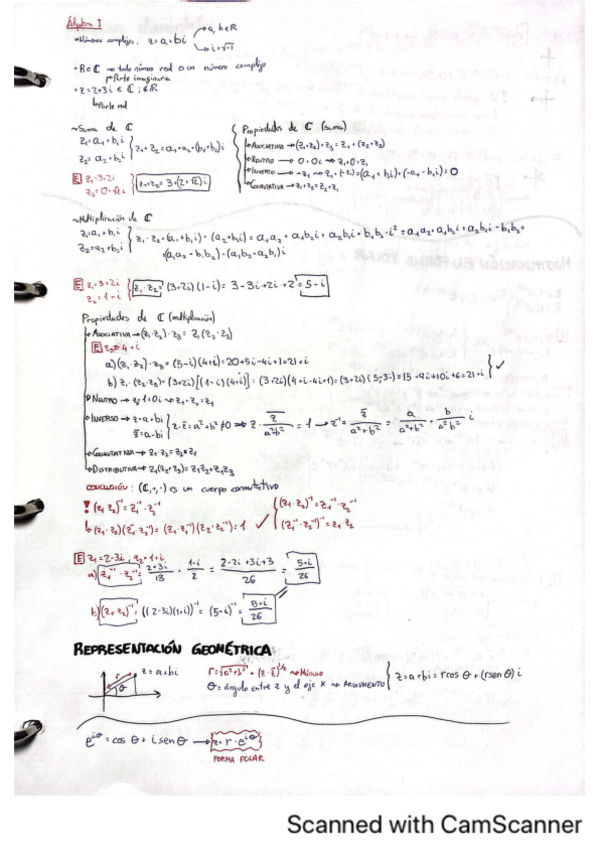 Álgebra I
a, b ∈ R
• Números complejos, z = a + bi
i = √-1
• R ⊂ C → todo número real es un número complejo
Parte imaginaria
• z = 2+3i ∈ C ; ∉ R
Parte real
~Suma de C
z₁ = a₁ + b₁i
z₂ = a₂ + b₂i
z₁ + z₂ = a₁ + a₂ + (b₁ + b₂)i
E z₁ = 3+2i
z₂ = 0+√2i
z₁ + z₂ = 3 + (2+√2)i
Propiedades de C (suma)
Asociativa → (z₁+z₂) + z₃ = z₁ + (z₂+z₃)
Neutro → 0 + 0i → z₁ + 0 = z₁
Inverso → -z₁ → z₁ + (-z₁) = (a₁ + b₁i) + (-a₁ - b₁i) = 0
Conmutativa → z₁ + z₂ = z₂ + z₁
~Multiplicación de C
z₁ = a₁ + b₁i
z₂ = a₂ + b₂i
z₁ · z₂ = (a₁ + b₁i) · (a₂ + b₂i) = a₁a₂ + a₁b₂i + a₂b₁i + b₁b₂ · i² = a₁a₂ + a₁b₂i + a₂b₁i - b₁b₂ =
= (a₁a₂ - b₁b₂) + (a₁b₂ + a₂b₁)i
E z₁ = 3+2i
z₂ = 1-i
z₁ · z₂ = (3+2i) (1-i) = 3 - 3i + 2i + 2 = 5 - i
Propiedades de C (multiplicación)
Asociativa → (z₁ · z₂) · z₃ = z₁ (z₂ · z₃)
E z₃ = 4 + i
a) (z₁ · z₂) · z₃ = (5-i)(4+i) = 20+5i-4i+1 = 21+i
b) z₁ · (z₂ · z₃) = (3+2i) [(1-i) (4+i)] = (3+2i) (4+i-4i+1) = (3+2i) (5-3i) = 15-9i+10i+6 = 21+i ✓
Neutro → 1+0i → z₁ · 1 = z₁
Inverso → z = a + bi
z̄ = a - bi
z · z̄ = a² + b² ≠ 0 ⇒ z · z̄/(a²+b²) = 1 → z⁻¹ = z̄/(a²+b²) = a/(a²+b²) - b/(a²+b²) i
Conmutativa → z₁ · z₂ = z₂ · z₁
Distributiva → z₁(z₂+z₃) = z₁z₂ + z₁z₃
CONCLUSIÓN : (C, +, ·) es un cuerpo conmutativo
! (z₁ · z₂)⁻¹ = z₁⁻¹ · z₂⁻¹
(z₁ · z₂)(z₁⁻¹ · z₂⁻¹) = (z₁ · z₁⁻¹) (z₂ · z₂⁻¹) = 1 ✓
(z₁ · z₂)⁻¹ = z₁⁻¹ · z₂⁻¹
(z₁⁻¹ · z₂⁻¹)⁻¹ = z₁ · z₂
E z₁ = 2-3i ; z₂ = 1+i
a) z₁⁻¹ · z₂⁻¹ = (2+3i)/13 · (1-i)/2 = (2-2i+3i+3)/26 = (5+i)/26
b) (z₁ · z₂)⁻¹ = ((2-3i)(1+i))⁻¹ = (5-i)⁻¹ = (5+i)/26
REPRESENTACIÓN GEOMÉTRICA
r
θ
z = a + bi
r = √(a²+b²) = (z · z̄)^1/2 → Módulo
θ = ángulo entre z y el eje x → ARGUMENTO
z = a + bi = r cos θ + (r sen θ) i
e^iθ = cos θ + i sen θ → z = r · e^iθ
FORMA POLAR
Scanned with CamScanner